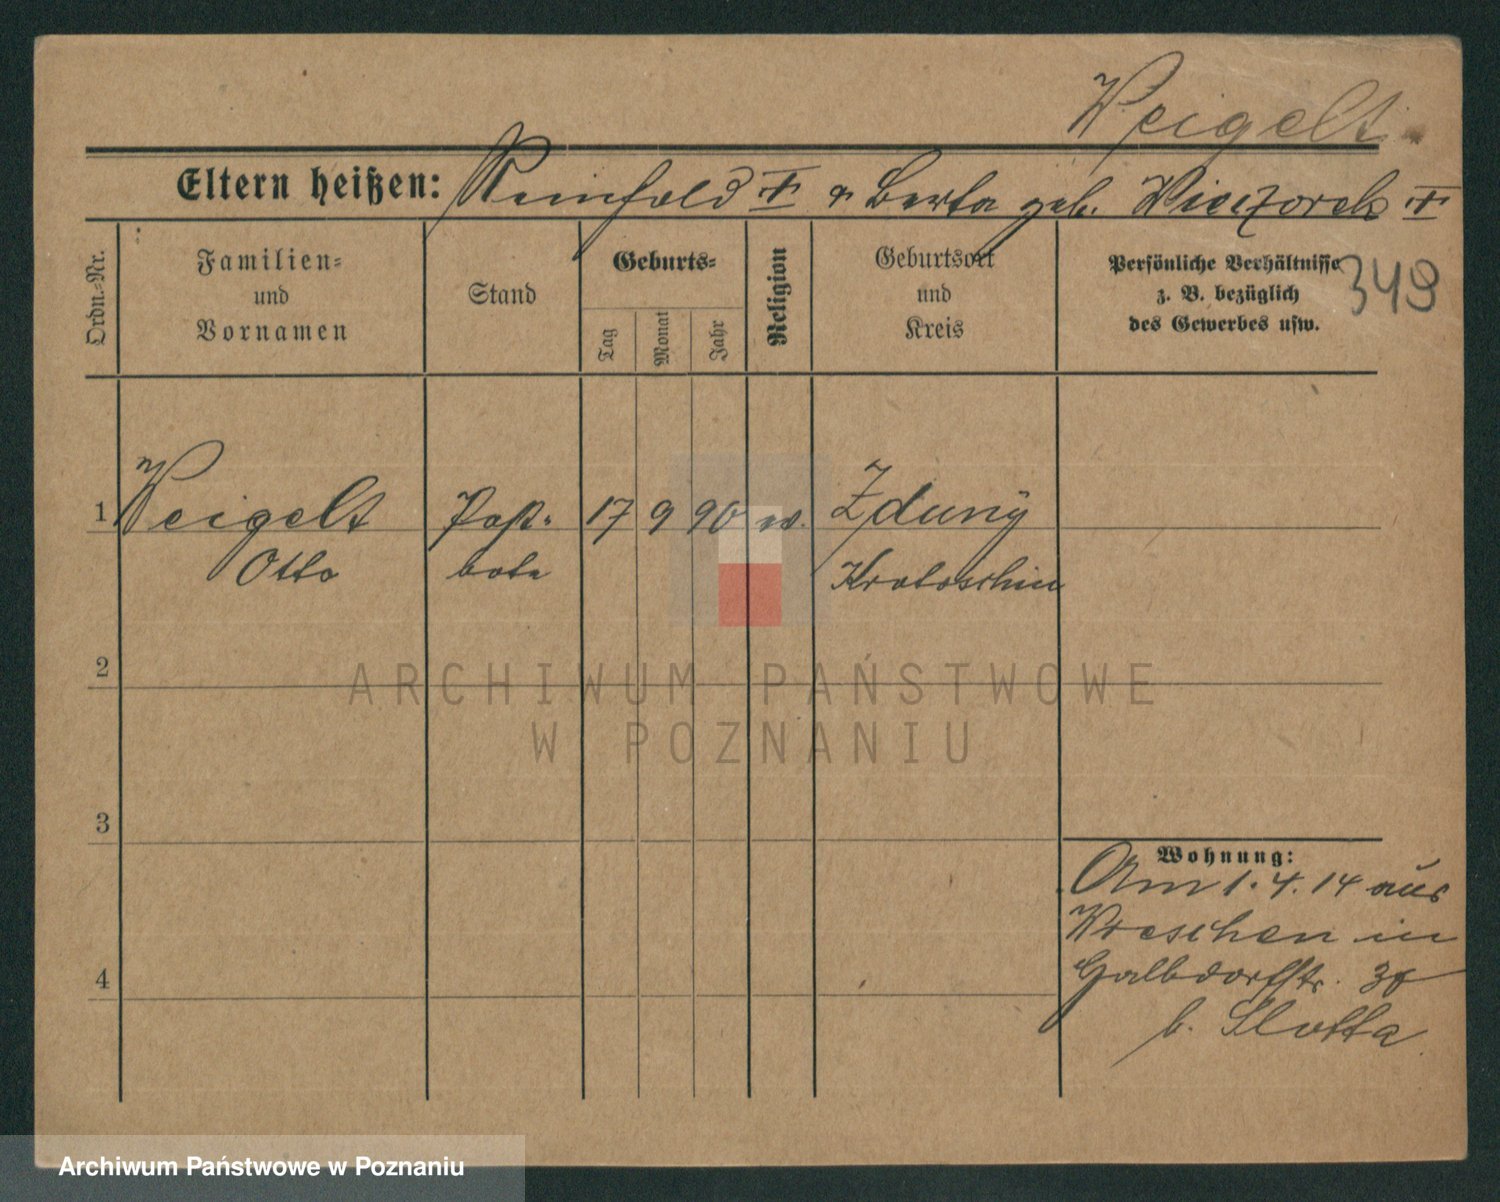 Weigelt
Eltern heißen: Reinhold † & Berta geb. Wieczorek †
Ordn.-Nr.
Familien-
und
Vornamen
Stand
Geburts-
Tag
Monat
Jahr
Religion
Geburtsort
und
Kreis
Persönliche Verhältnisse
z. B. bezüglich
des Gewerbes usw.
349
1 Weigelt Post- 17 9 90 ev. Zduny
Otto bote Krotoschin
2
3
4
Wohnung:
Am 1. 4. 14 aus
Wreschen in
Halbdorfstr.
b. Slotta
ARCHIWUM PAŃSTWOWE
W POZNANIU
Archiwum Państwowe w Poznaniu